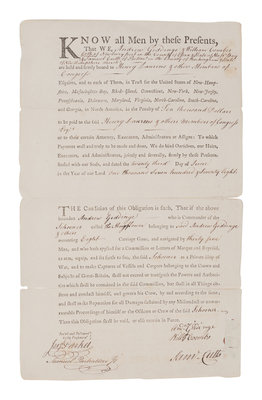 KNOW all Men by these Presents,
That WE, Andrew Giddings & William Coombs
held and firmly bound to Henry Laurens & other Members of
Congress
Esquires, and to each of Them, in Trust for the United States of New-Hamp-
shire, Massachusetts-Bay, Rhode-Island, Connecticut, New-York, New-Jersey,
Pennsylvania, Delaware, Maryland, Virginia, North-Carolina, South-Carolina,
and Georgia, in North-America, in the Penalty of Ten thousand Dollars
to be paid to the said Henry Laurens & other Members of Congress
Esqrs
or to their certain Attorney, Executors, Administrators or Assigns: To which
Payment well and truly to be made and done, We do bind Ourselves, our Heirs,
Executors, and Administrators, jointly and severally, firmly by these Presents.
Sealed with our Seals, and dated the twenty third Day of June
in the Year of our Lord One thousand Seven hundred & Seventy Eight.
THE Condition of this Obligation is such, That if the above
bounden Andrew Giddings who is Commander of the
Schooner called the belonging to said Andrew Giddings
& others
mounting Eight Carriage Guns, and navigated by thirty five
Men, and who hath applied for a Commission, or Letters of Marque and Reprisal,
to arm, equip, and set forth to Sea, the said Schooner as a Private Ship of
War, and to make Captures of Vessels and Cargoes belonging to the Crown and
Subjects of Great-Britain, shall not exceed or transgress the Powers and Authorities
which shall be contained in the said Commission, but shall in all Things observe
and conduct himself, and govern his Crew, by and according to the same,
and shall make Reparation for all Damages sustained by any Misconduct or unwar-
rantable Proceedings of himself or the Officers or Crew of the said Schooner
Then this Obligation shall be void, or else remain in Force.
Sealed and Delivered
in the Presence of
And Giddings
Willm Coombs
Saml Cutts